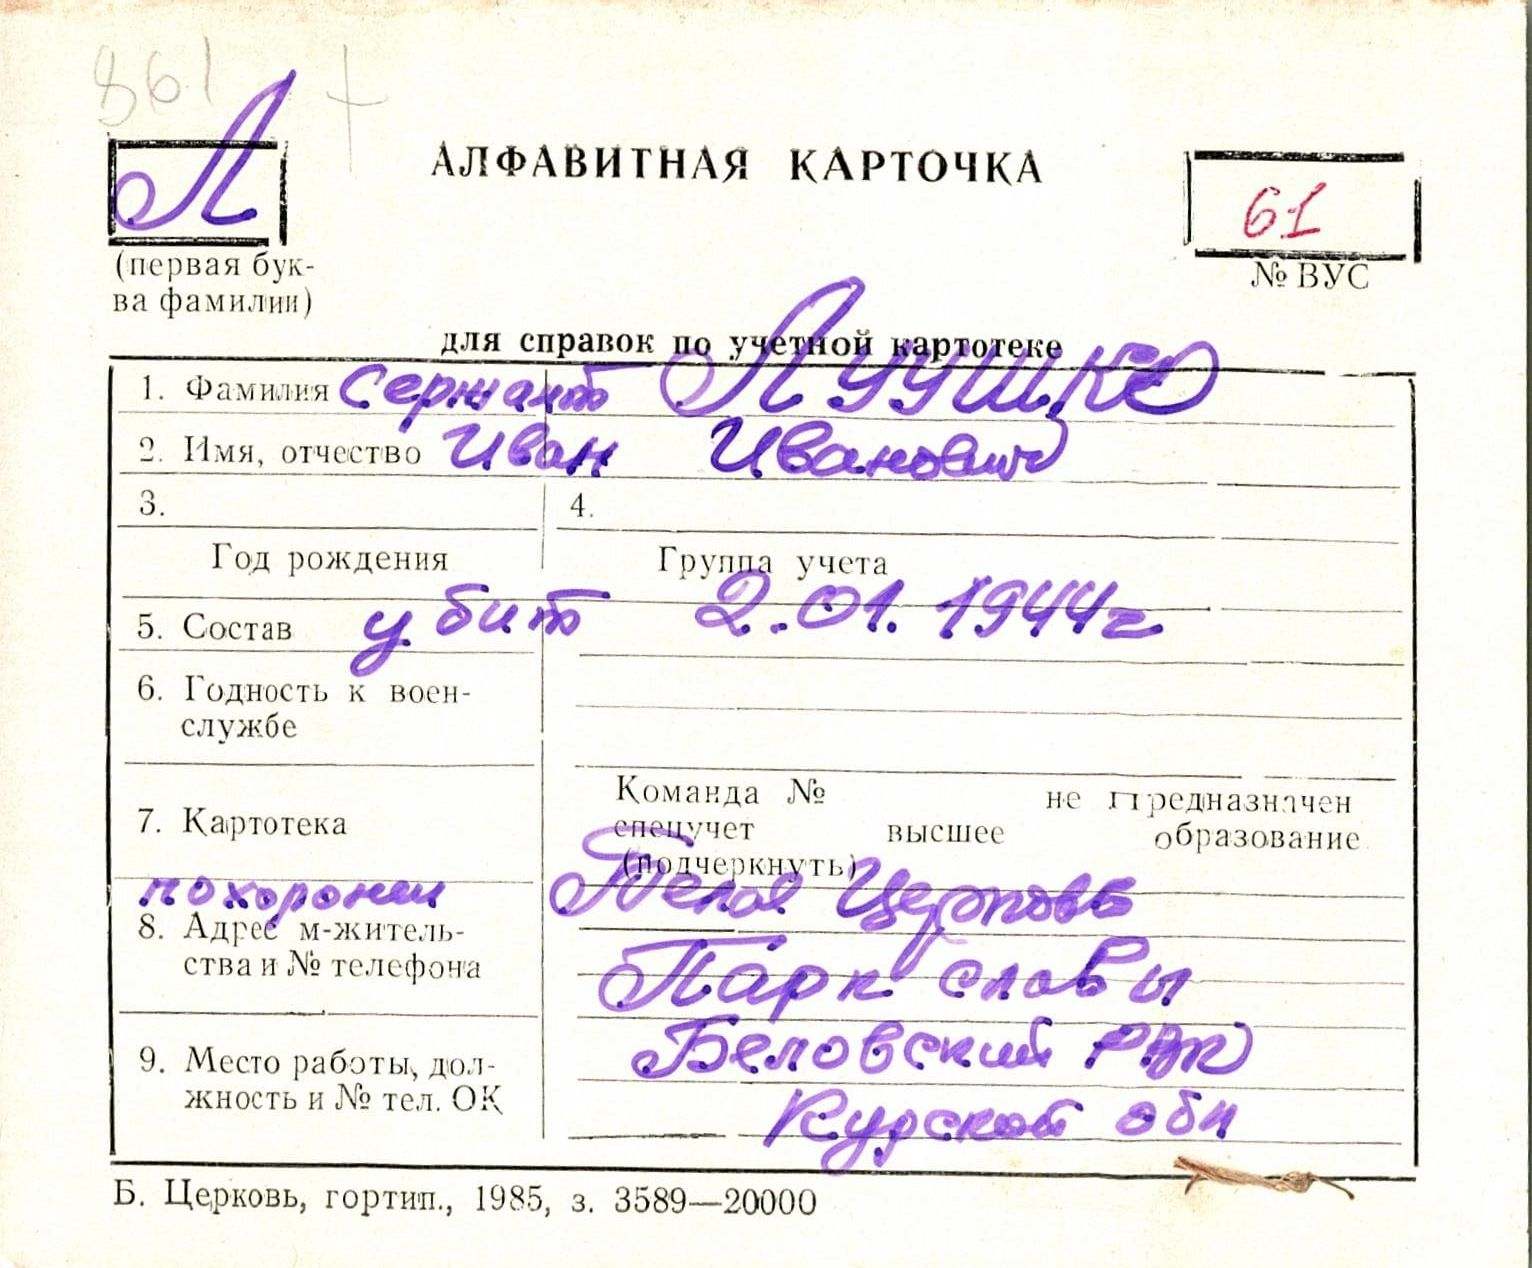 861 †
Л
АЛФАВИТНАЯ КАРТОЧКА
61
(первая бук-
ва фамилии)
№ ВУС
для справок по учетной картотеке
1. Фамилия Сержант
2. Имя, отчество Иван Иванович
3. 4.
Год рождения Группа учета
5. Состав убит 2.01.1944г
6. Годность к воен-
службе
Команда № не предназначен
7. Картотека спецучет высшее образование
(подчеркнуть)
похоронен Белая Церковь
8. Адрес м-житель-
ства и № телефона Парк славы
Беловский РВК
9. Место работы, дол-
жность и № тел. ОК Курской обл
Б. Церковь, гортип., 1985, з. 3589—20000